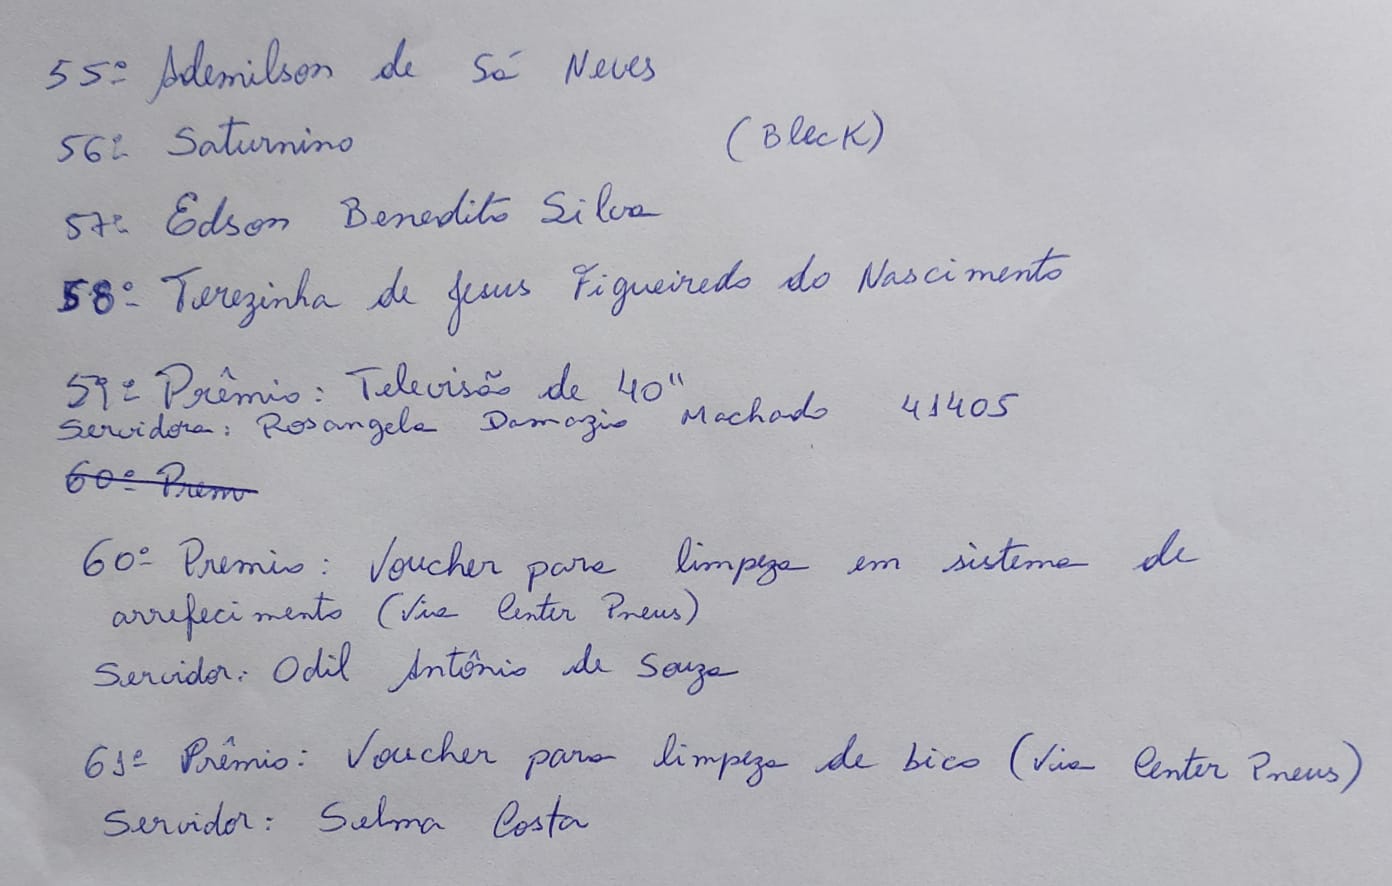 55º Ademilson de Sá Neves
56º Saturnino (Bleck)
57º Edson Benedito Silva
58º Terezinha de Jesus Figueiredo do Nascimento
59º Prêmio: Televisão de 40"
Servidora: Rosangela Damazio Machado 41405
60º Prem
60º Premio: Voucher para limpeza em sistema de
arrefecimento (Via Center Pneus)
Servidor: Odil Antônio de Souza
61º Prêmio: Voucher para limpeza de bico (Via Center Pneus)
Servidor: Selma Costa